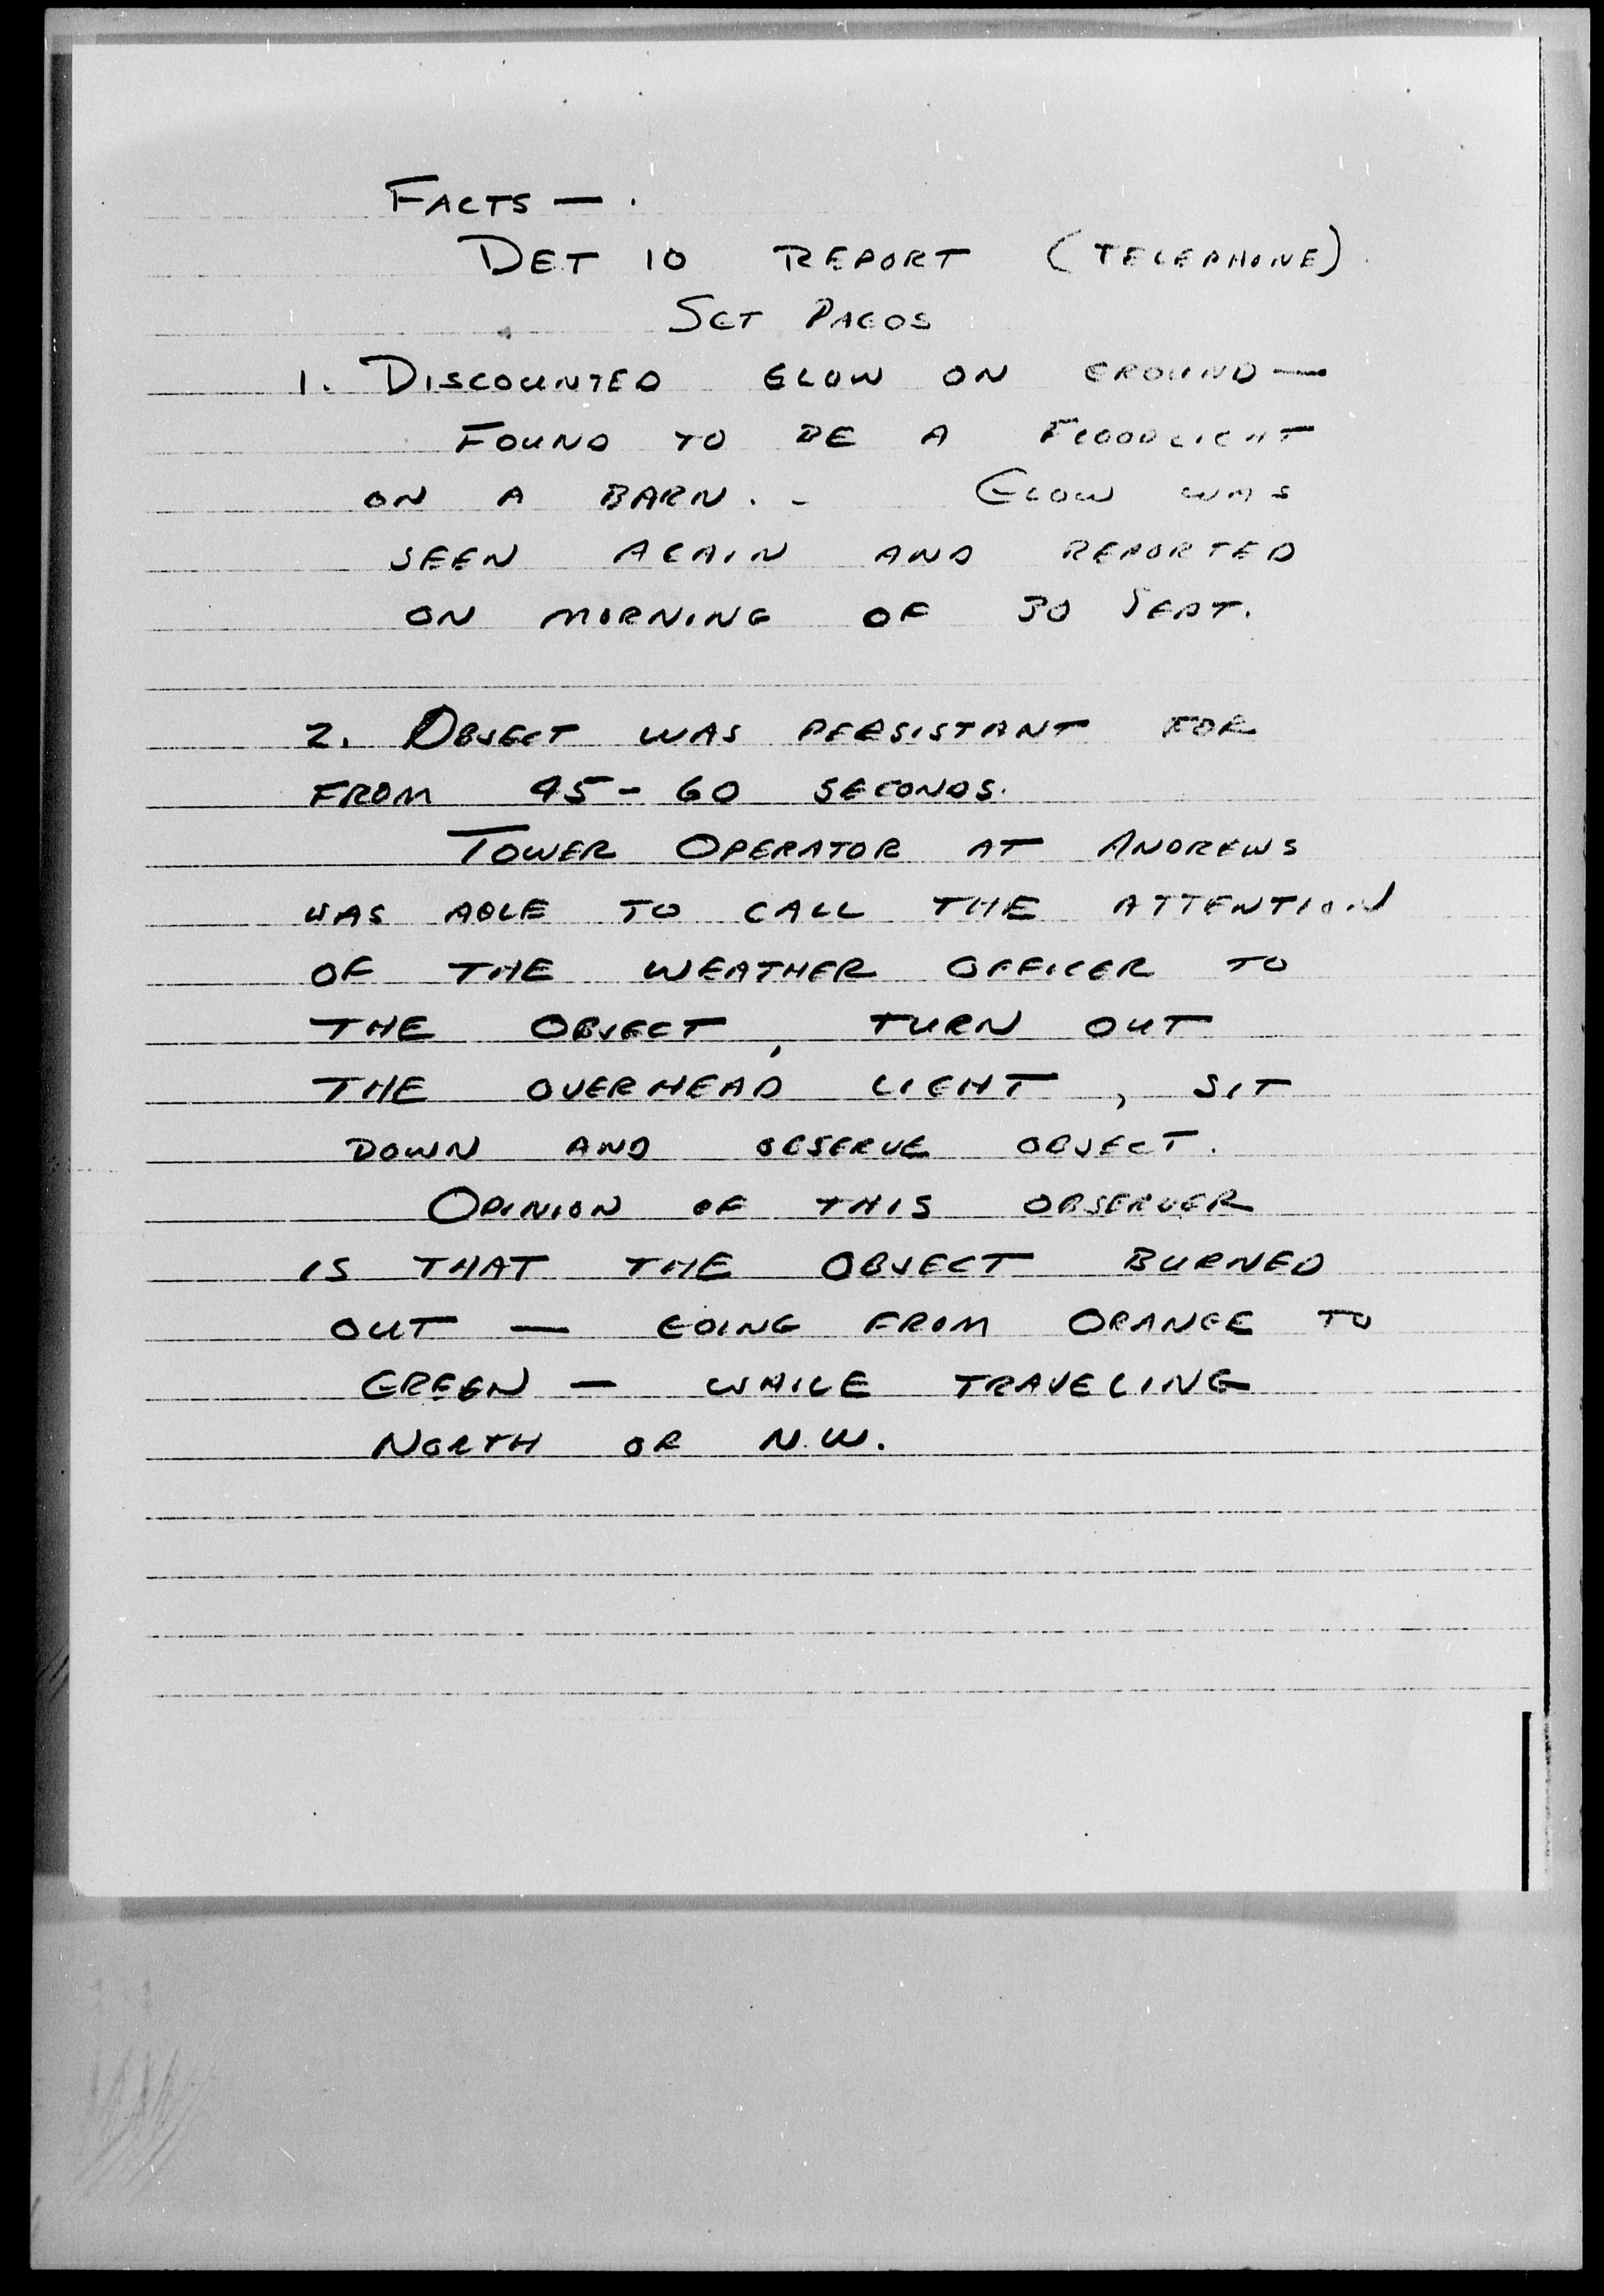 FACTS — .
DET 10 REPORT (TELEPHONE)
SGT PAGOS
1. DISCOUNTED GLOW ON GROUND —
FOUND TO BE A FLOODLIGHT
ON A BARN. - GLOW WAS
SEEN AGAIN AND REPORTED
ON MORNING OF 30 SEPT.
2. OBJECT WAS PERSISTANT FOR
FROM 45 - 60 SECONDS.
TOWER OPERATOR AT ANDREWS
WAS ABLE TO CALL THE ATTENTION
OF THE WEATHER OFFICER TO
THE OBJECT, TURN OUT
THE OVERHEAD LIGHT, SIT
DOWN AND OBSERVE OBJECT.
OPINION OF THIS OBSERVER
IS THAT THE OBJECT BURNED
OUT — GOING FROM ORANGE TO
GREEN — WHILE TRAVELING
NORTH OR N.W.